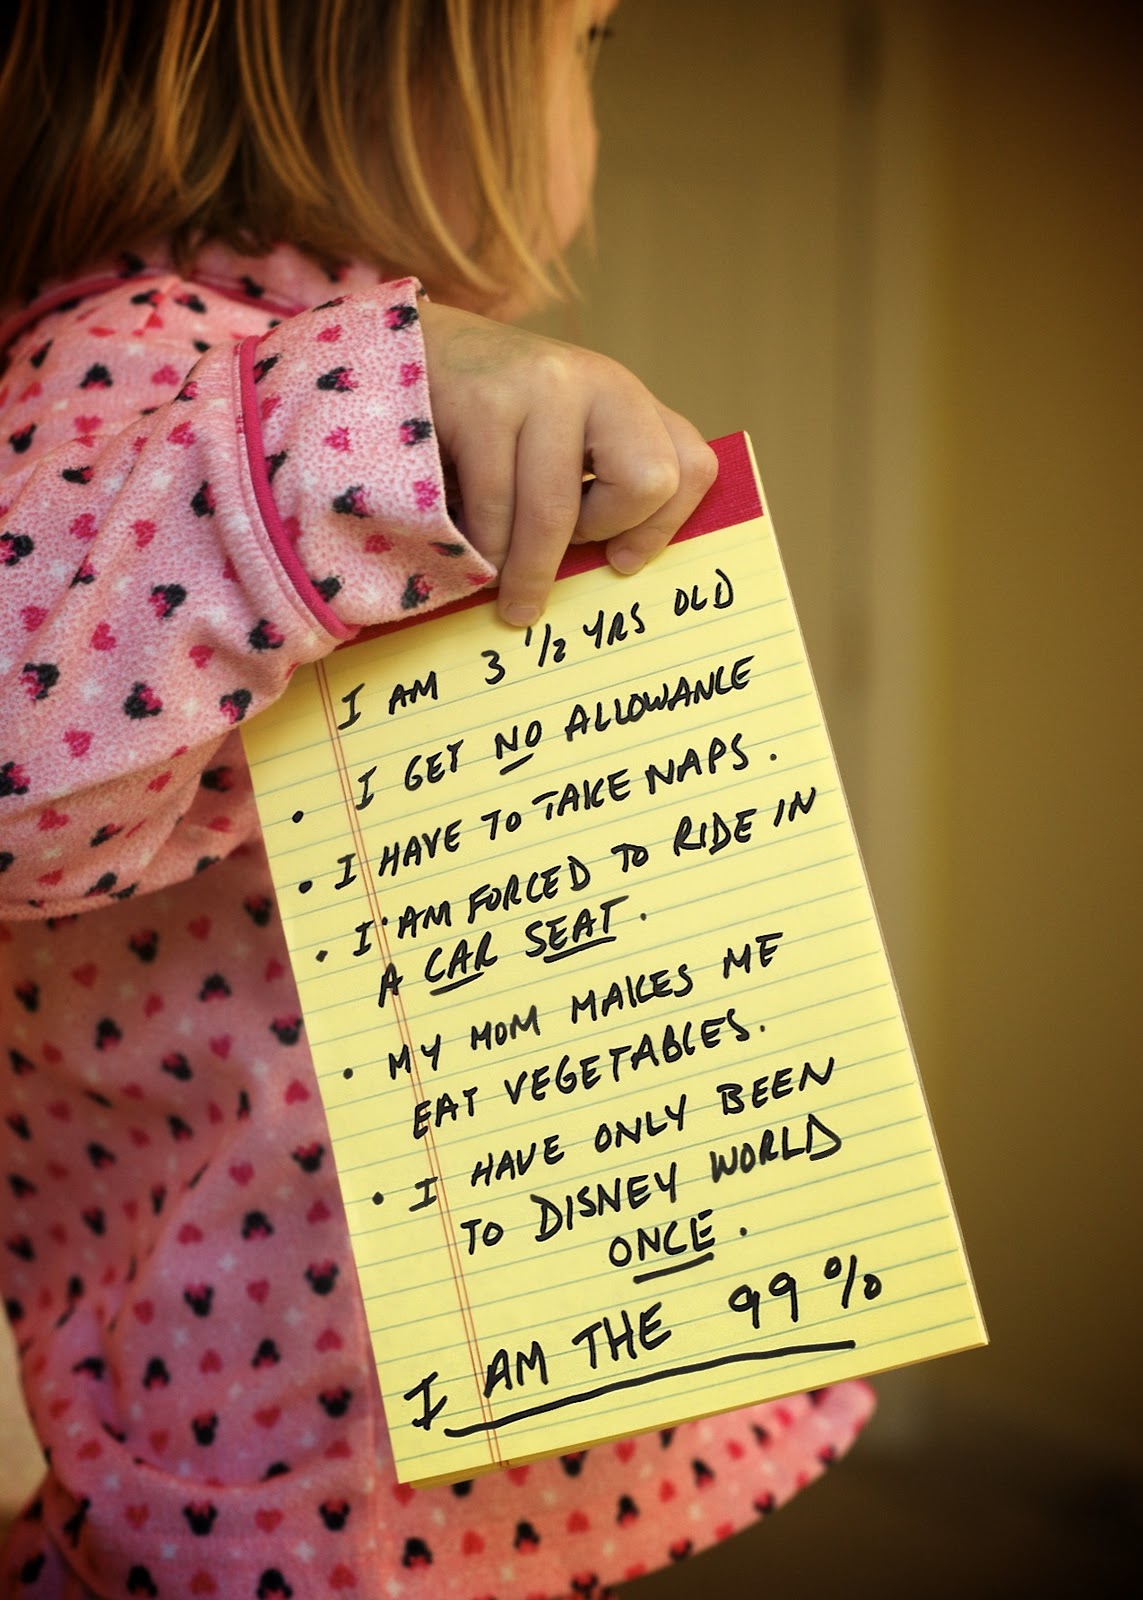 I AM 3 1/2 YRS OLD
• I GET NO ALLOWANCE
• I HAVE TO TAKE NAPS.
• I AM FORCED TO RIDE IN
A CAR SEAT.
• MY MOM MAKES ME
EAT VEGETABLES.
• I HAVE ONLY BEEN
TO DISNEY WORLD
ONCE.
I AM THE 99%